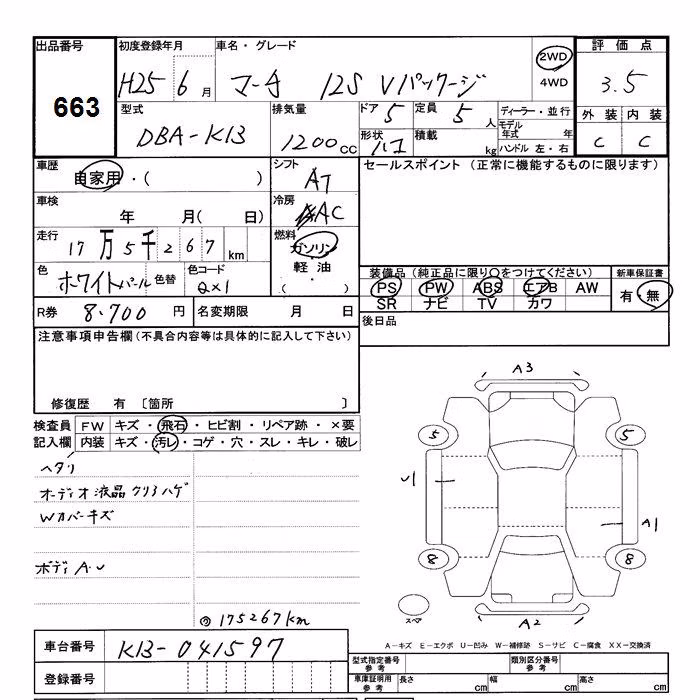 出品番号 初度登録年月 車名・グレード 2WD 4WD 評価点
663 H25 6月 マーチ 12S Vパッケージ 3.5
型式 排気量 ドア 5 定員 5人 ディーラー・並行 外装 内装
DBA-K13 1200cc 形状 ハコ 積載 kg モデル年式 年 C C
ハンドル 左・右
車歴 自家用・( ) シフト AT セールスポイント (正常に機能するものに限ります)
車検 年 月( 日) 冷房 AC
走行 17万5千267km 燃料 ガソリン
軽油
( )
色 ホワイトパール 色替 色コード QX1
装備品(純正品に限り〇をつけてください) 新車保証書
PS PW ABS エアB AW 有・無
SR ナビ TV カワ
R券 8.700円 名変期限 月 日 後日品
注意事項申告欄(不具合内容等は具体的に記入して下さい)
修復歴 有 〔箇所 〕
検査員 FW キズ・飛石・ヒビ割・リペア跡・×要
記入欄 内装 キズ・汚レ・コゲ・穴・スレ・キレ・破レ
ヘタリ
オーディオ液晶クリアハゲ
Wカバーキズ
ボディA.U
◎175267km
A3
5 5
U1
A1
8 8
スペア
A2
A-キズ E-エクボ U-凹み W-補修跡 S-サビ C-腐食 XX-交換済
車台番号 K13-041597
登録番号
型式指定番号 参考 類別区分番号 参考
車庫証明用 参考 長さ cm 幅 cm 高さ cm